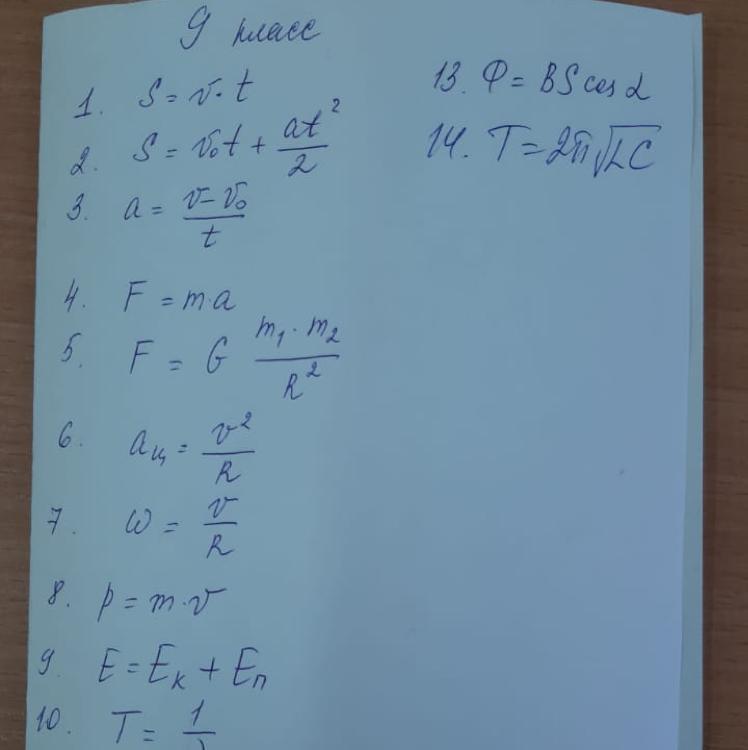 9 класс
1. S = v · t
2. S = v₀t + at²/2
3. a = v – v₀/t
4. F = m·a
5. F = G m₁ · m₂/R²
6. aц = v²/R
7. ω = v/R
8. p = m·v
9. E = Eк + Eп
10. T = 1/
13. Φ = BS cos α
14. T = 2π√LC